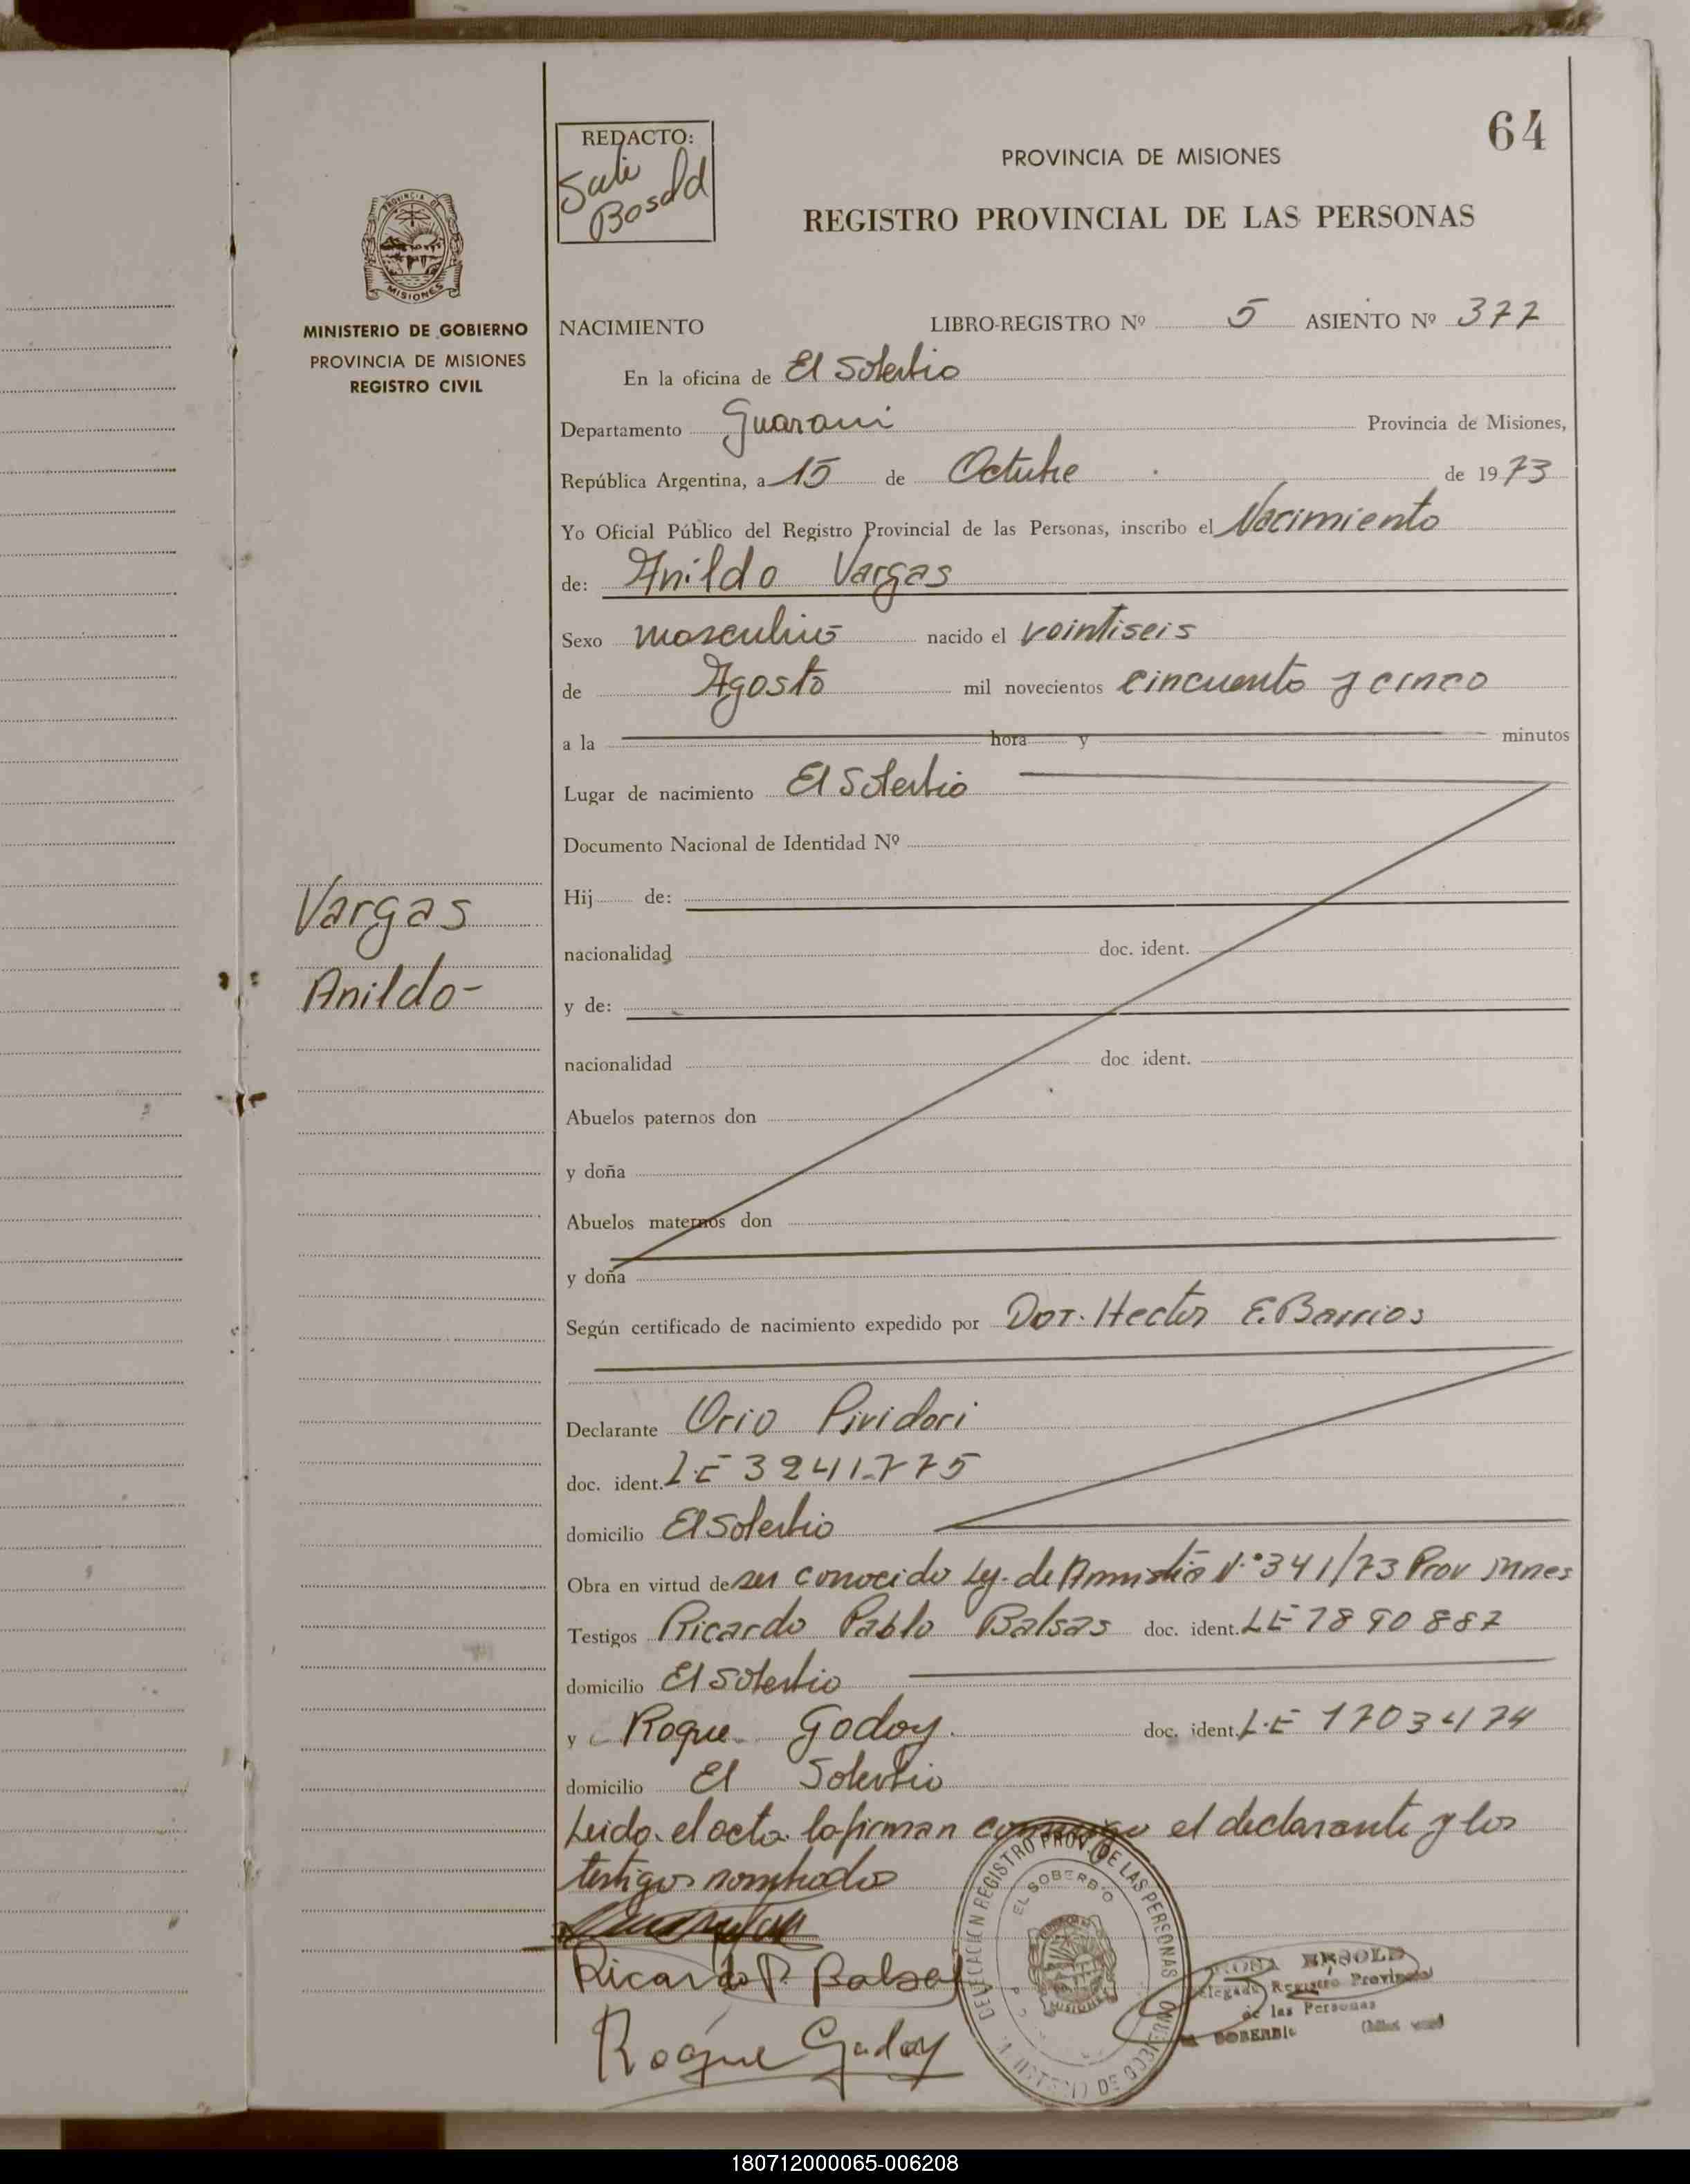 64
REDACTO:
PROVINCIA DE MISIONES
REGISTRO PROVINCIAL DE LAS PERSONAS
PROVINCIA DE
MISIONES
MINISTERIO DE GOBIERNO
PROVINCIA DE MISIONES
REGISTRO CIVIL
NACIMIENTO LIBRO-REGISTRO Nº 5 ASIENTO Nº 377
En la oficina de El Soberbio
Departamento Guarani Provincia de Misiones,
República Argentina, a 15 de Octubre de 1973
Yo Oficial Público del Registro Provincial de las Personas, inscribo el Nacimiento
de: Anildo Vargas
Sexo masculino nacido el veintiseis
de Agosto mil novecientos cincuenta y cinco
a la hora y minutos
Lugar de nacimiento El Soberbio
Documento Nacional de Identidad Nº
Hij de:
nacionalidad doc. ident.
y de:
nacionalidad doc. ident.
Abuelos paternos don
y doña
Abuelos maternos don
y doña
Según certificado de nacimiento expedido por Dor. Hector E. Barrios
Declarante Orio Pividori
doc. ident. L.E 3241.775
domicilio El Soberbio
Obra en virtud de ser conocido Ley de Amnistia N.º 341/73 Prov Mnes
Testigos Ricardo Pablo Balsas doc. ident. LE 7890887
domicilio El Soberbio
y Roque Godoy. doc. ident. L.E 1703474
domicilio El Soberbio
Leido el acta la firman conmigo el declarante y los
testigos nombrados
Vargas
Anildo-
Ricardo P. Balsas
Roque Godoy
DELEGACION REGISTRO PROV. DE LAS PERSONAS
EL SOBERBIO
MISIONES
MINISTERIO DE GOBIERNO
Registro Provincial
de las Personas
SOBERBIO
180712000065-006208